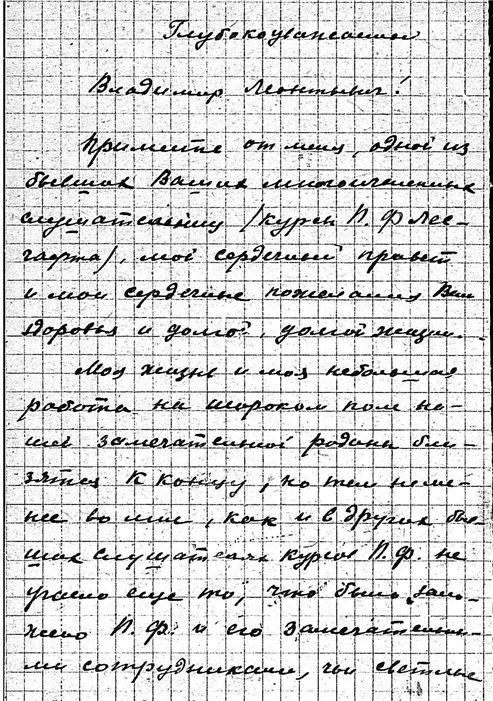 Глубокоуважаемый
Владимир Леонтьевич!
Примите от меня, одной из
бывших Ваших многочисленных
слушательниц (курсы П. Ф Лес-
гафта), мой сердечный привет
и мои сердечные пожелания Вам
здоровья и долгой, долгой жизни.
Моя жизнь и моя небольшая
работа на широком поле на-
шей замечательной родины бли-
зятся к концу, но тем неме-
нее во мне, как и в других быв-
ших слушателях курсов П. Ф. не
угасло еще то, что было зало-
жено П. Ф. и его замечательны-
ми сотрудниками, чьи светлые